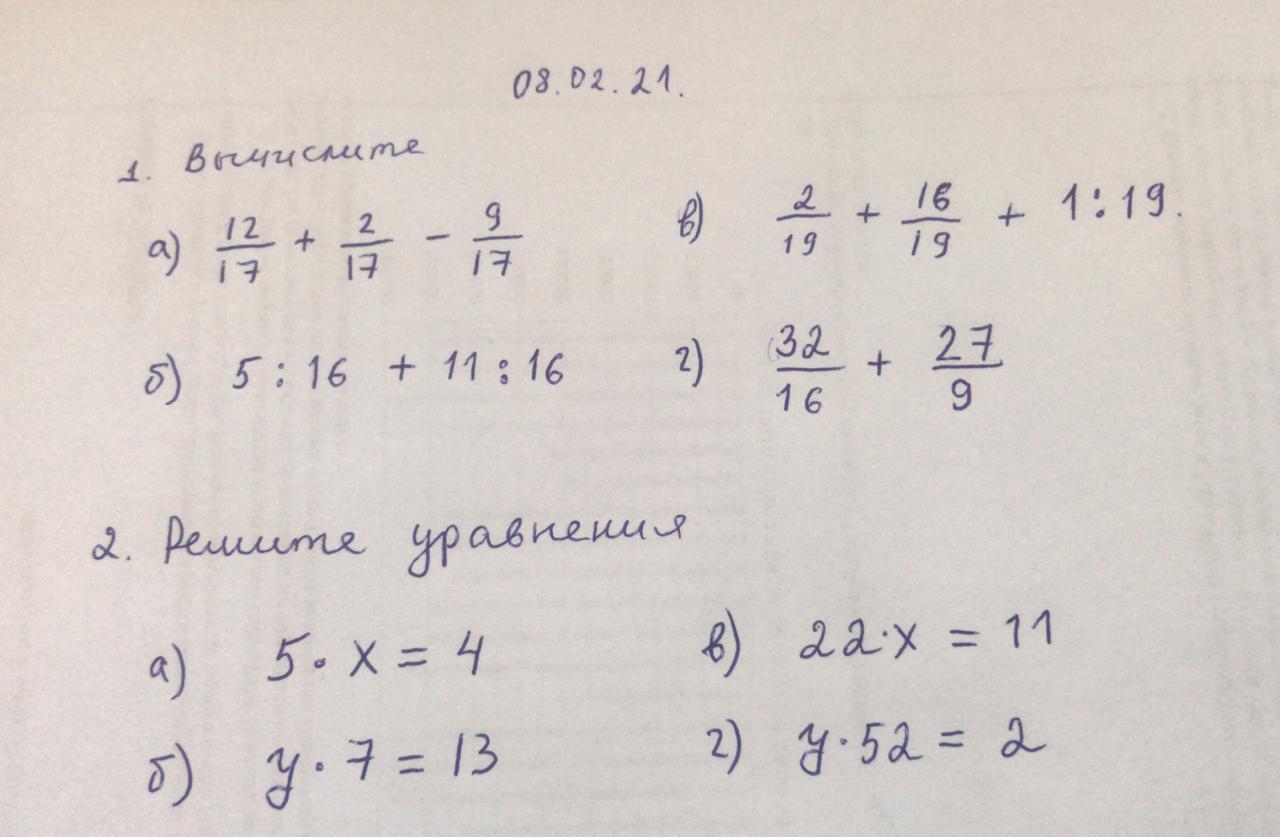 08.02.21.
1. Вычислите
а) 12/17 + 2/17 - 9/17
в) 2/19 + 16/19 + 1:19.
б) 5:16 + 11:16
г) 32/16 + 27/9
2. Решите уравнения
а) 5·x = 4
в) 22·x = 11
б) y·7 = 13
г) y·52 = 2